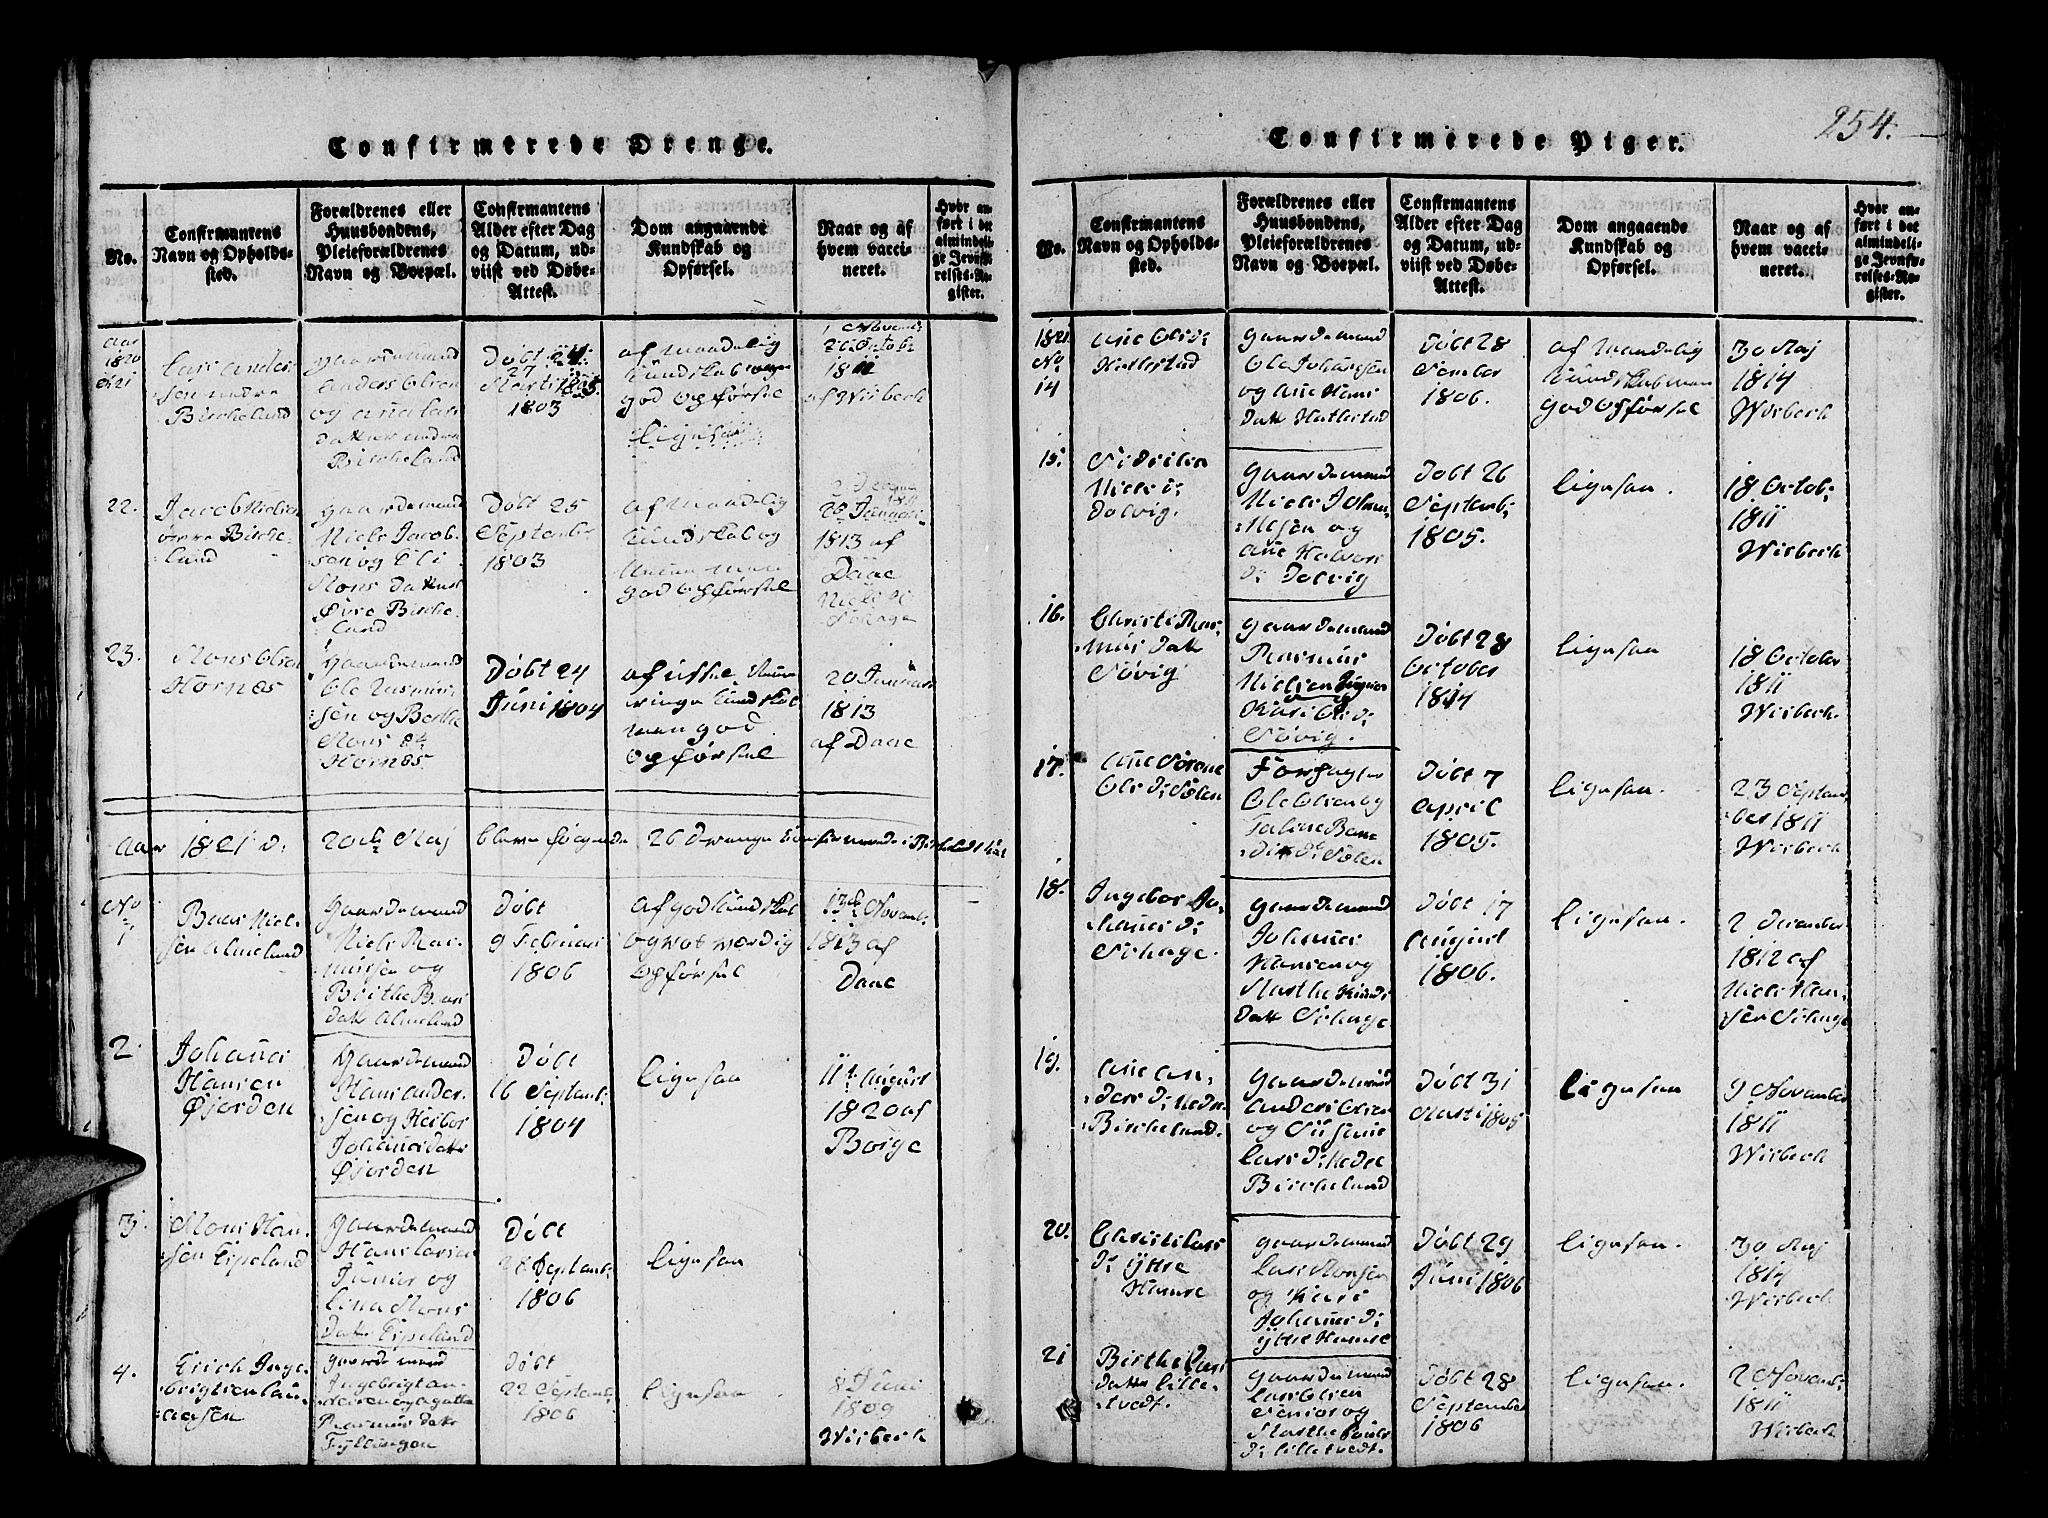 254.
Confirmerede Drenge.
No.
Confirmantens
Navn og Opholds-
sted.
Forældrenes eller
Huusbondens,
Pleieforældrenes
Navn og Boepæl.
Confirmantens
Alder efter Dag
og Datum, ud-
viist ved Døbe-
Attest.
Dom angaaende
Kundskab og
Opførsel.
Naar og af
hvem vacci-
neret.
Hvor an-
ført i det
almindeli-
ge Jevnfø-
relses-Re-
gister.
Aar
1820
No 21
Lars Ander-
sen nedre
Bircheland
Gaardemand
Anders Olsen
og Ane Lars
Datter nedre
Bircheland
Døbt 24
27
Marti
1803
af maadelig
Kundskab men
god Opførsel
1811
af Wisbech
22.
Jacob Nielsen
øvre Birche-
land
Gaardemand
Niels Jacob-
sen og Eli
Mons Datter
Øvre Birche-
land
Døbt 25
Septembr
1803
af maadelig
Kundskab og
god Opførsel
1813 af
Daae
23.
Mons Olsen
Hornes
Gaardemand
Ole Rasmus-
sen og Berthe
Mons
Hornes
Døbt 24
Juni 1804
af
ringe Kundskab
men god
Opførsel
20 Januari
1813
af Daae
Aar 1821 d: 20de Maj bleve følgende 26 Drenge Confirmerede i
No
1
Baar Niel-
sen Almeland
Gaardemand
Niels Ras-
mussen og
Birthe Baars
Datr Almeland
Døbt
9 Februari
1806
af god Kundskab
og roesværdig
Opførsel
13de Novemb:
1813 af
Daae
2.
Johannes
Hansen
Øjorden
Gaardemand
Hans Ander-
sen og Herbor
Johannes Datr
Øjorden
Døbt
16 Septemb:
1804
ligesaa
11te August
1820 af
Borge
3.
Mons Han-
sen Espeland
Gaardemand
Hans Larsen
Junior og
Lina Mons
Datr Espeland
Døbt
28 Septemb:
1806
ligesaa
4.
Erich Inge-
brigtsen Lau-
aasen
Gaardemand
Ingebrigt
Rasmus Datr
Fyllingen
Døbt
22 Septemb:
1806
ligesaa
8 Juni
1809
Wisbech
Confirmerede Piger.
No.
Confirmantens
Navn og Opholds-
sted.
Forældrenes eller
Huusbondens,
Pleieforældrenes
Navn og Boepæl.
Confirmantens
Alder efter Dag
og Datum, ud-
viist ved Døbe-
Attest.
Dom angaaende
Kundskab og
Opførsel.
Naar og af
hvem vacci-
neret.
Hvor an-
ført i det
almindeli-
ge Jevnfø-
relses-Re-
gister.
1821
No
14
Ane Ols D:
Hatlestad
Gaardemand
Ole Johansen
og Ane Hans
Datr Hatlestad
Døbt 28
1806.
af maadelig
Kundskab men
god Opførsel
30 Maj
1814
Wisbech
15.
Sidsilia
Niels D:
Dolvig.
Gaardemand
Niels Johan-
nesen og
Ane Halvors
D: Dolvig
Døbt 26
Septemb:
1805.
ligesaa.
18 Octob:
1811
Wisbech
16.
Christi Ras-
mus Datr
Søvig
Gaardemand
Rasmus
Nielsen
Kari Ols D:
Søvig.
Døbt 28
October
1814
ligesaa
18 October
1811
Wisbech.
17.
Ane Sørene
Ols D: Solen
Ole Olsen og
Døbt 7
April
1805.
ligesaa.
23 Septem-
ber 1811
Wisbech
18.
Ingebor Jo-
hannes D:
Søhage.
Gaardemand
Johannes
Hansen og
Marthe Knuds
Datr Søhage
Døbt 17
August
1806.
ligesaa.
2 December
1812 af
Niels Han-
sen Søhage
19.
Ane An-
ders D: Nedre
Bircheland.
Gaardemand
Anders Olsen
og Susanne
Lars D: Nedre
Bircheland
Døbt 31
Marti 1805
ligesaa
9 November
1811
Wisbech
20.
Christi Lars
D: Ytre
Hamre
Gaardemand
Lars Monsen
og Kari
Johannes D:
Ytre Hamre
Døbt 29
Juni 1806
ligesaa.
30 Maj
1814
Wisbech
21
Birthe Lars
Datr Lille-
tvedt.
Gaardemand
Lars Olsen
Senior og
Marthe
D: Lilletvedt.
Døbt 28
September
1806
ligesaa.
2 Novemb:
1811
Wisbech